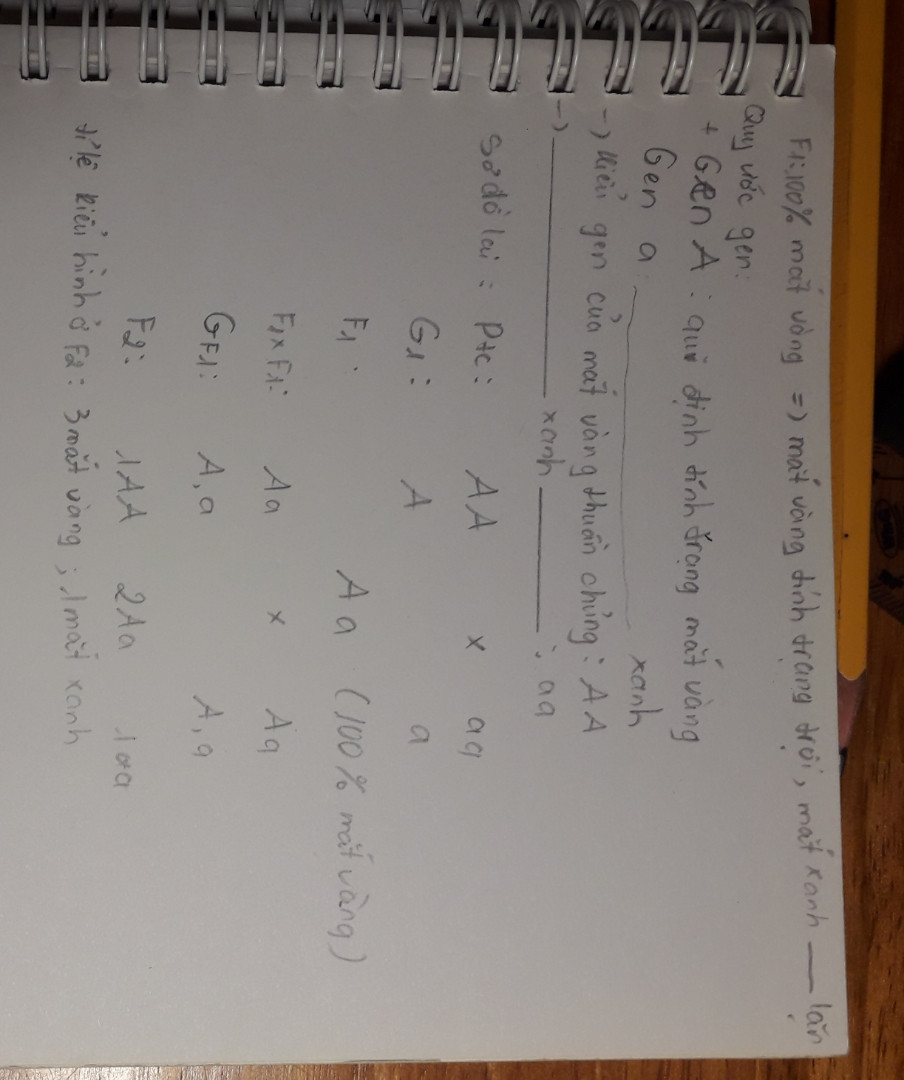 F1: 100% mắt vàng => mắt vàng tính trạng trội, mắt xanh — lặn
Quy ước gen:
+ Gen A: qui định tính trạng mắt vàng
Gen a: ——— xanh
-) Kiểu gen của mắt vàng thuần chủng: AA
-) ——— xanh ———: aa
Sơ đồ lai: Ptc: AA x aa
G1: A a
F1: Aa (100% mắt vàng)
F1xF1: Aa x Aa
GF1: A,a A,a
F2: 1AA 2Aa 1aa
tỉ lệ kiểu hình ở F2: 3 mắt vàng; 1 mắt xanh